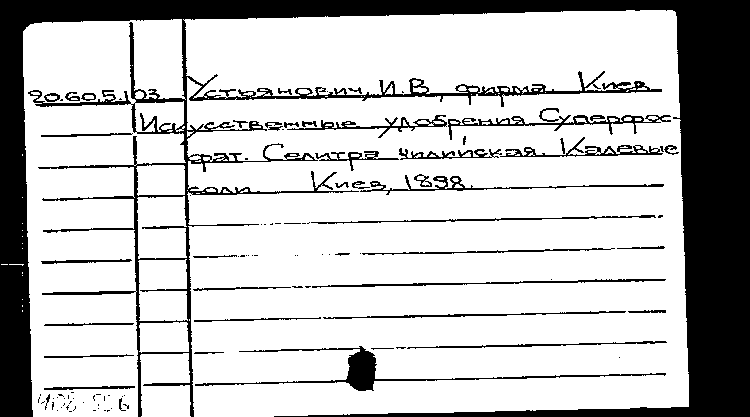 20.60.5.103 Устьянович, И.В., фирма. Киев
Искусственные удобрения. Суперфос-
фат. Селитра чилийская. Калевые
соли. Киев, 1898.